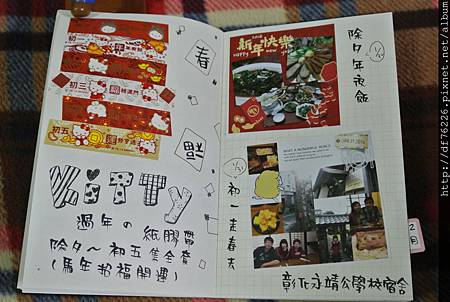 初二
初三
初五
春
福
Kitty
過年の紙膠帶
除夕~初五隻全套
(馬年招福開運)
2014
新年快樂
Happy new year
除夕年夜飯
WHAT A WONDERFUL WORLD
初一走春去
彰化永靖公學校宿舍
2月
http://df76226.pixnet.net/album